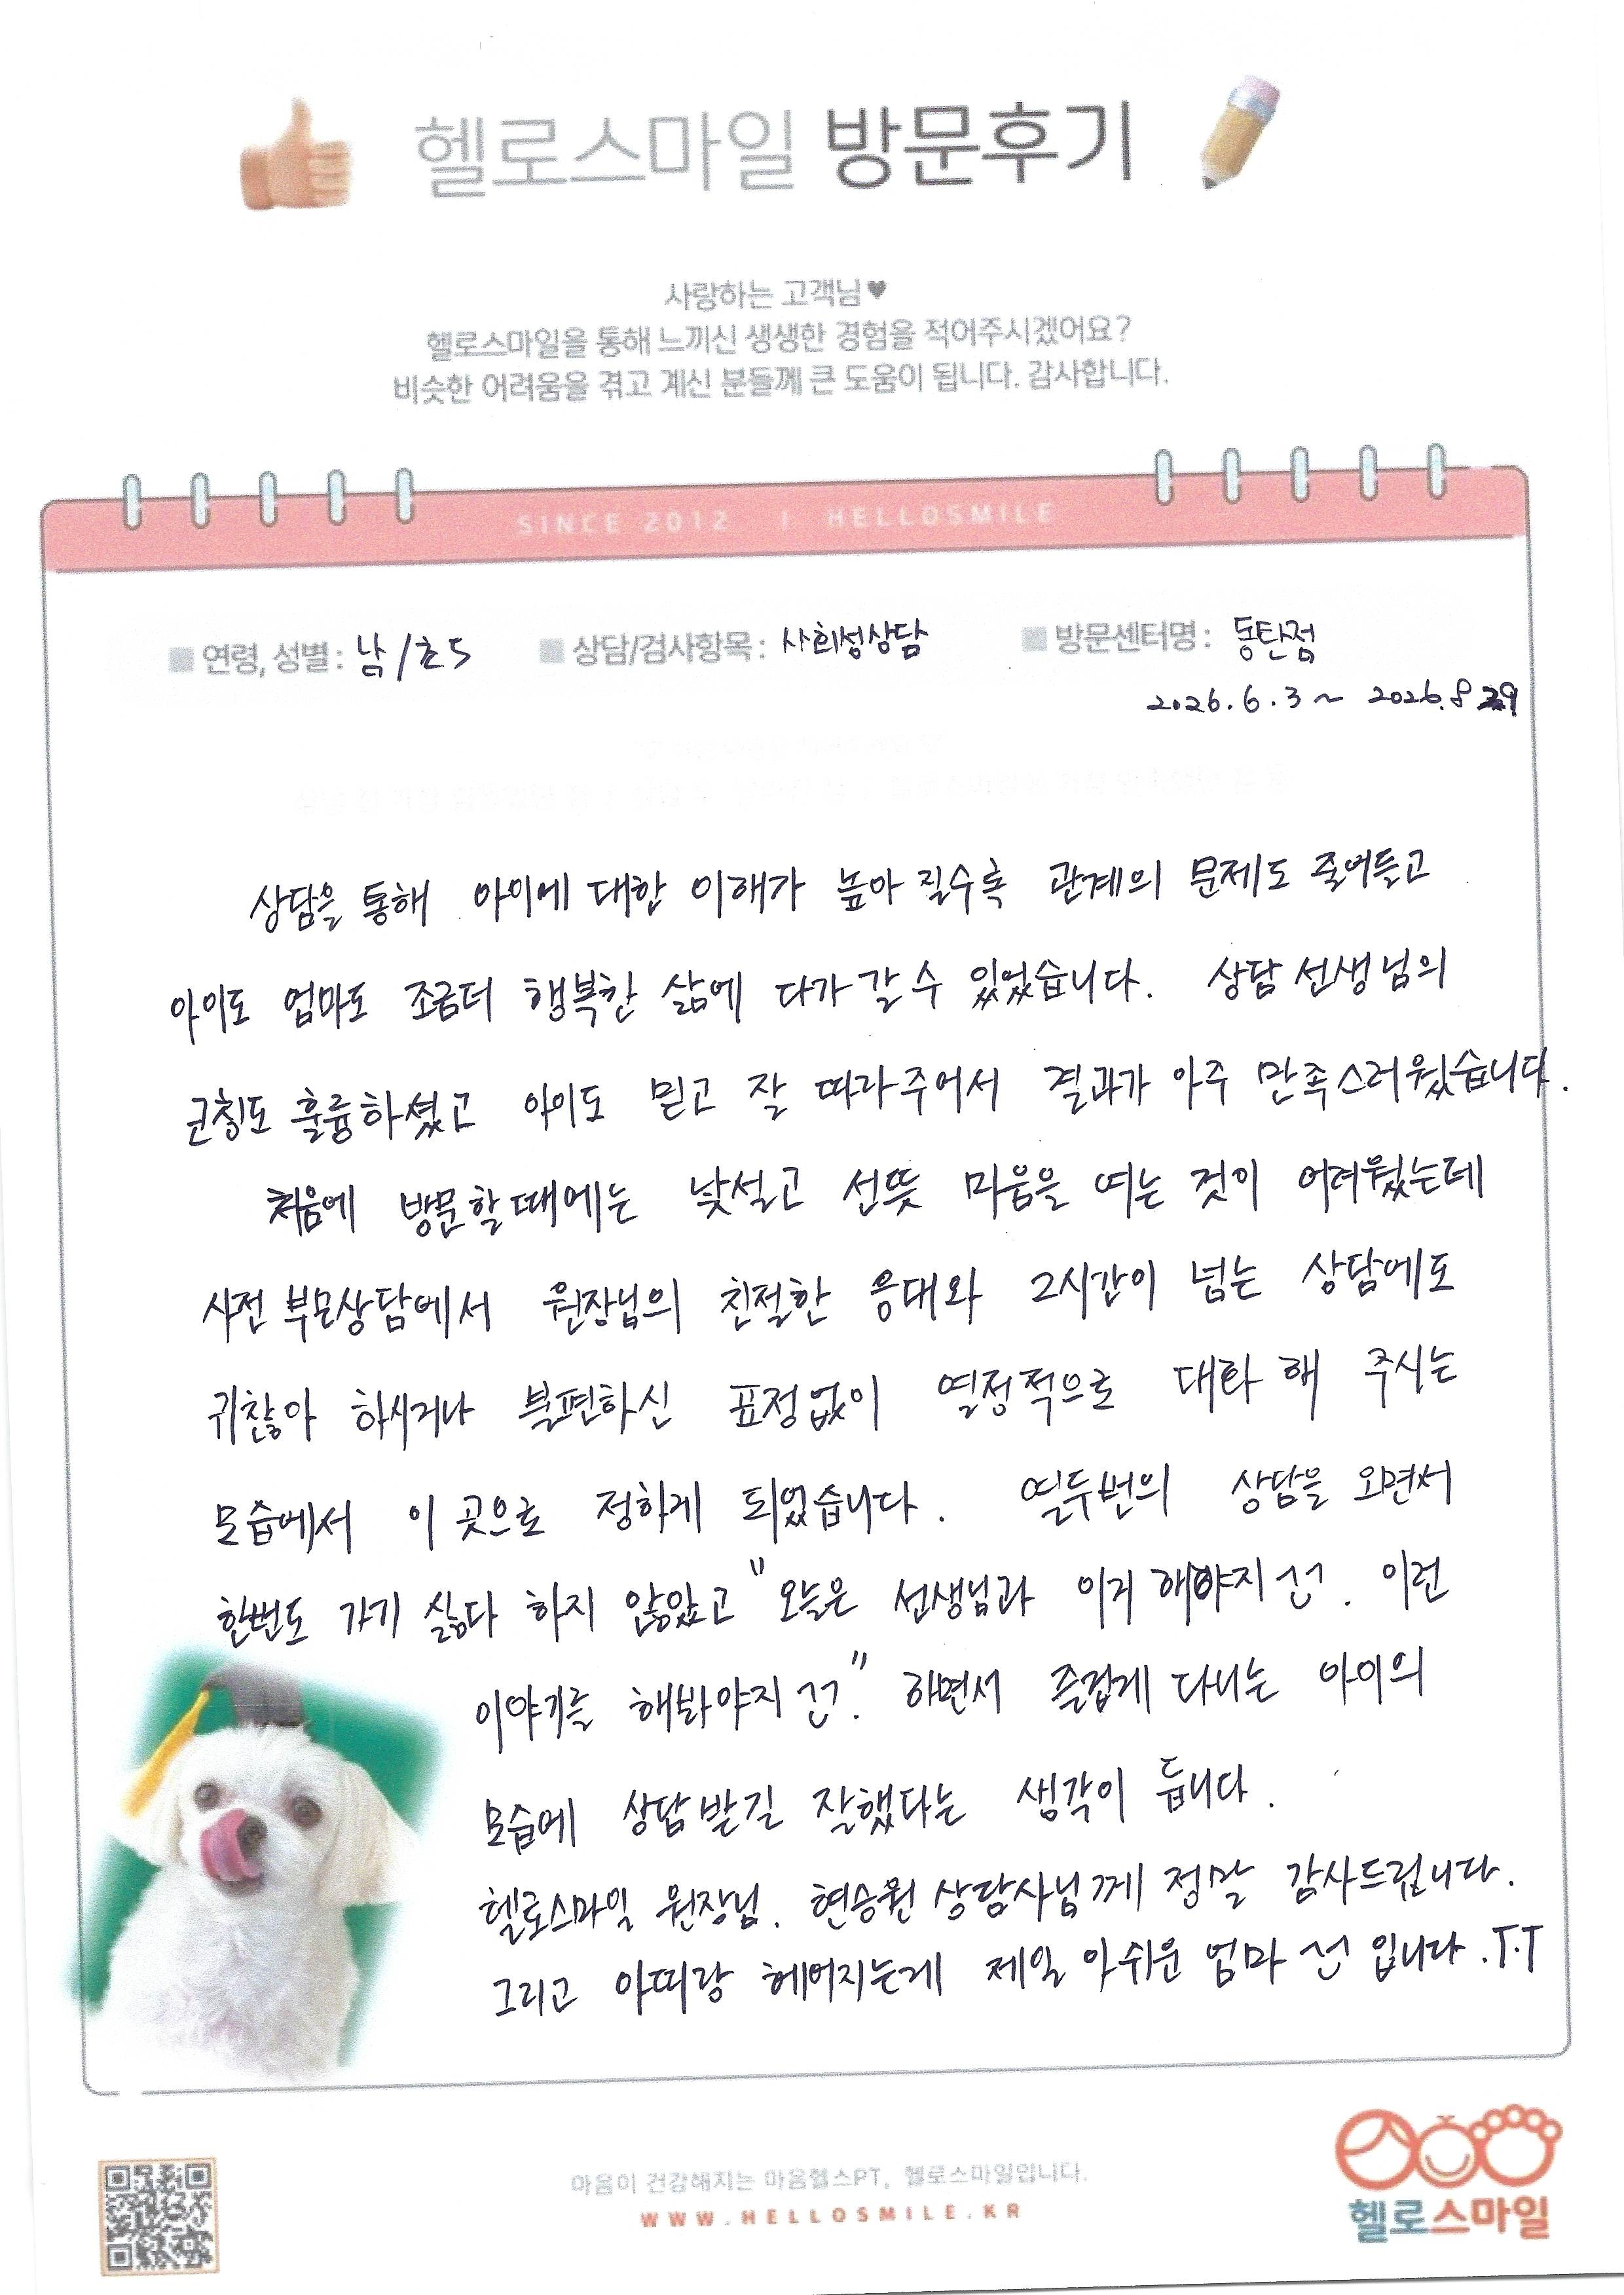 헬로스마일 방문후기
사랑하는 고객님♥
헬로스마일을 통해 느끼신 생생한 경험을 적어주시겠어요?
비슷한 어려움을 겪고 계신 분들께 큰 도움이 됩니다. 감사합니다.
SINCE 2012 | HELLOSMILE
■ 연령, 성별 : 남/초5 ■ 상담/검사항목 : 사회성상담 ■ 방문센터명 : 동탄점
2026.6.3 ~ 2026.8.29
상담을 통해 아이에 대한 이해가 높아질수록 관계의 문제도 줄어들고
아이도 엄마도 조금더 행복한 삶에 다가갈 수 있었습니다. 상담선생님의
코칭도 훌륭하셨고 아이도 믿고 잘 따라주어서 결과가 아주 만족스러웠습니다.
처음에 방문할때에는 낯설고 선뜻 마음을 여는 것이 어려웠는데
사전 부모상담에서 원장님의 친절한 응대와 2시간이 넘는 상담에도
귀찮아 하시거나 불편하신 표정없이 열정적으로 대화 해 주시는
모습에서 이 곳으로 정하게 되었습니다. 열두번의 상담을 오면서
한번도 가기 싫다 하지 않았고 "오늘은 선생님과 이거 해야지^^. 이런
이야기를 해봐야지^^." 하면서 즐겁게 다니는 아이의
모습에 상담받길 잘했다는 생각이 듭니다.
헬로스마일 원장님. 현승원 상담사님께 정말 감사드립니다.
그리고 아띠랑 헤어지는게 제일 아쉬운 엄마^^입니다.T.T
마음이 건강해지는 마음헬스PT, 헬로스마일입니다.
WWW.HELLOSMILE.KR
헬로스마일